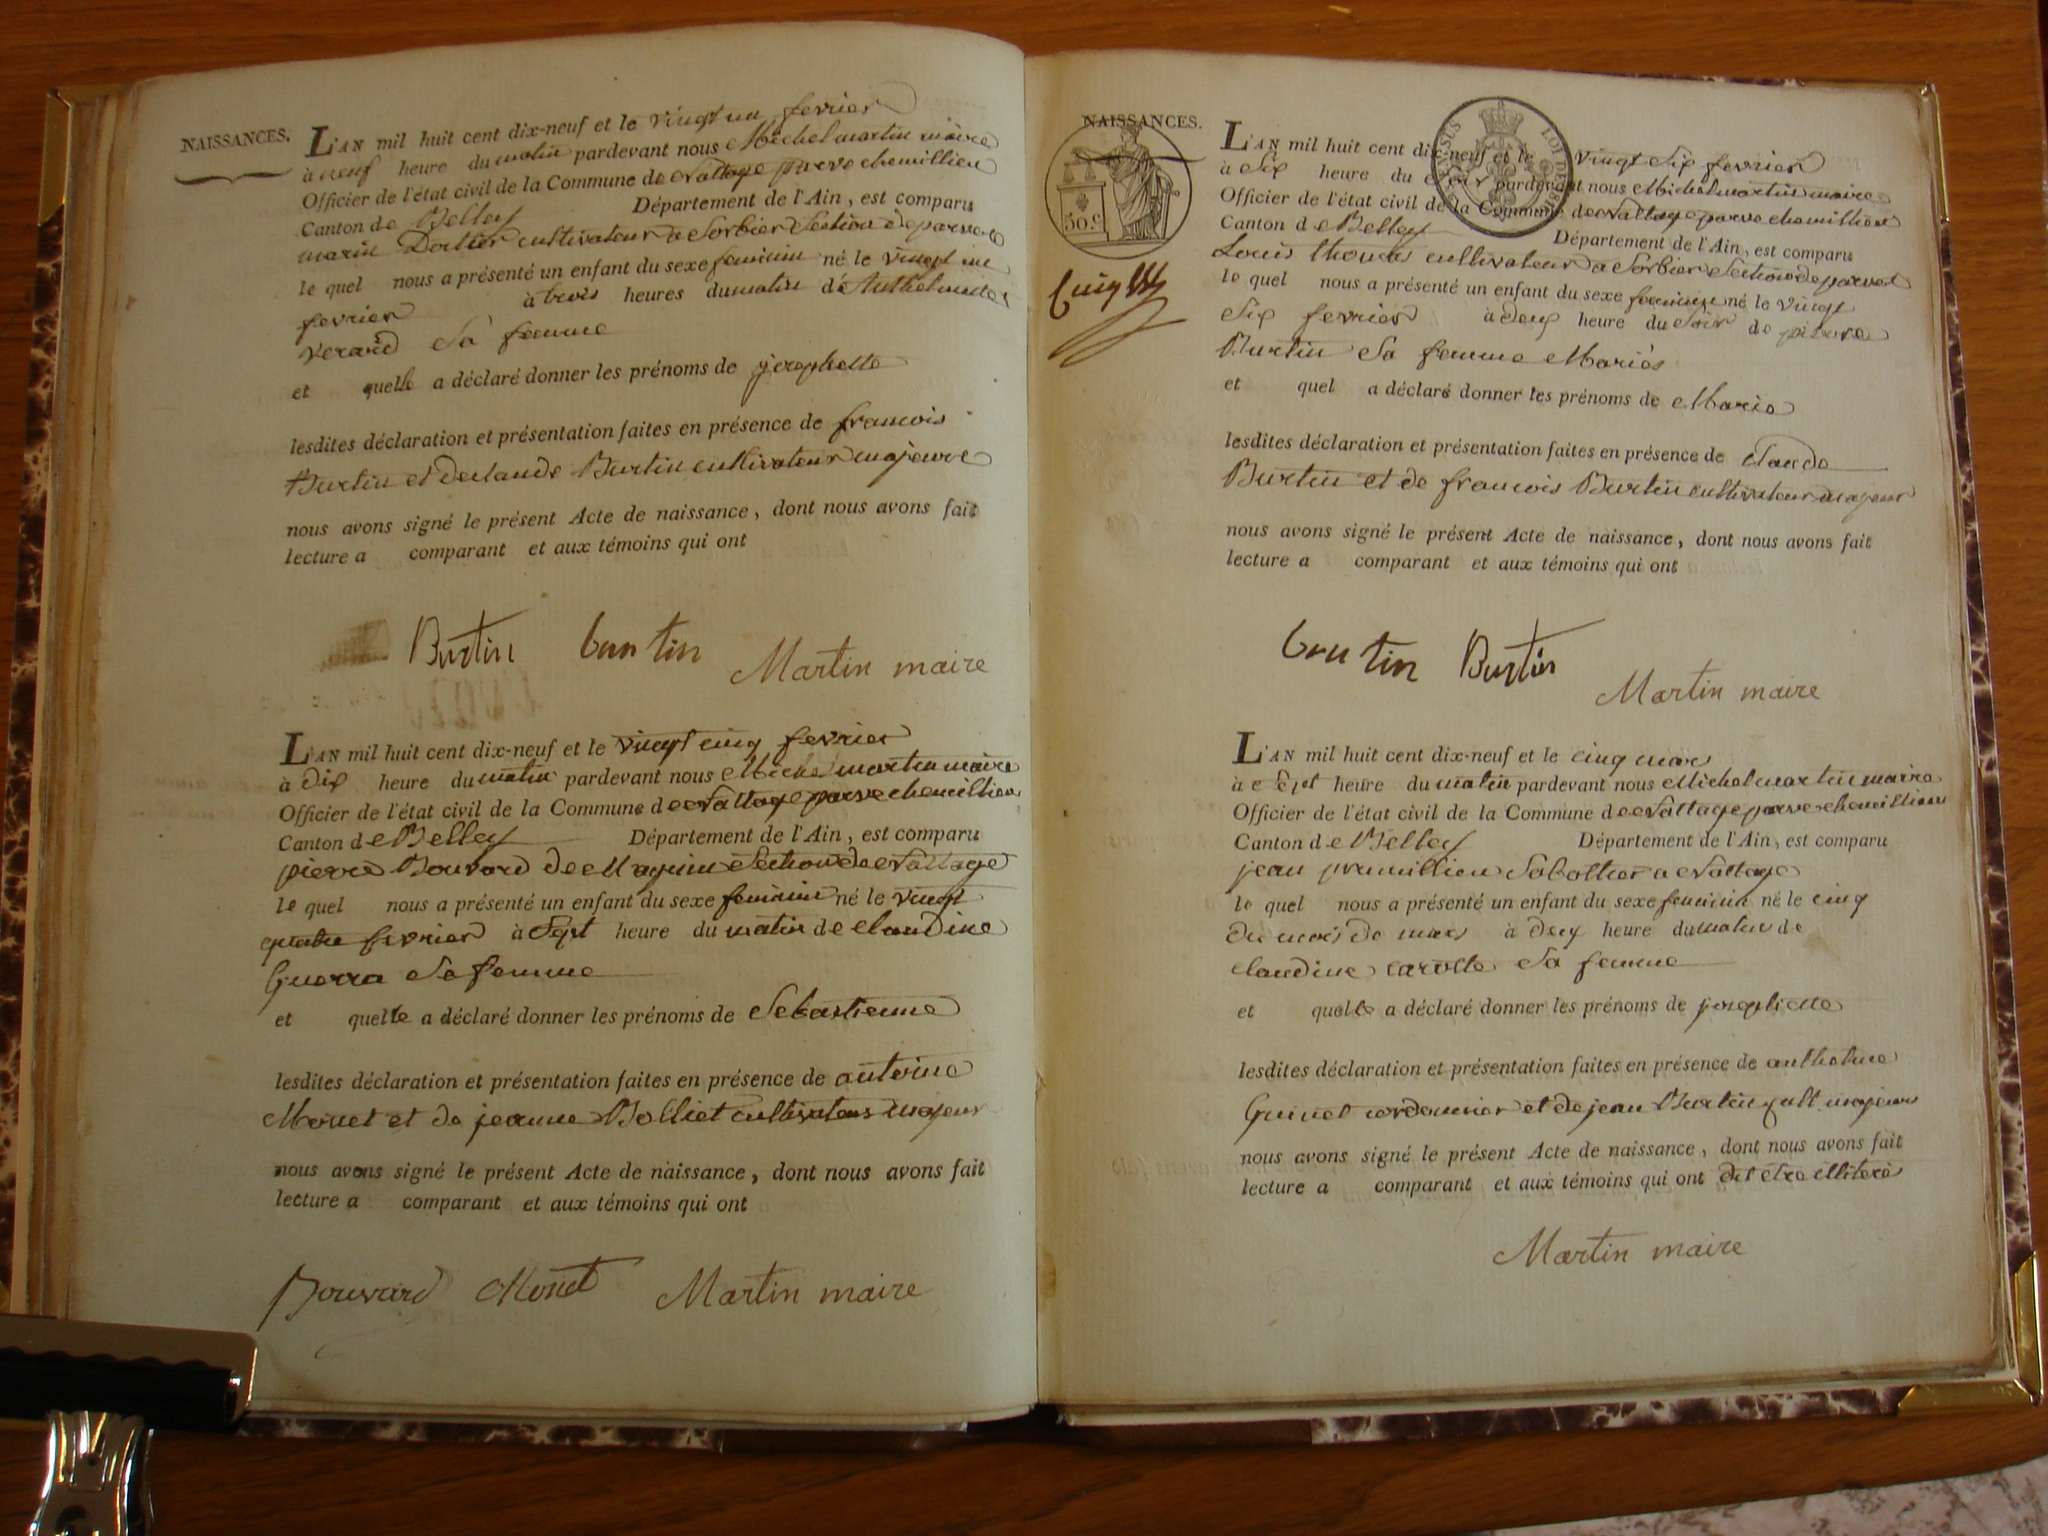 NAISSANCES.
L'AN mil huit cent dix-neuf et le vingt un fevrier
à neuf heure du matin pardevant nous Michel martin maire
Officier de l'état civil de la Commune de Nattage parve chemillieu
Canton de Belley Département de l'Ain, est comparu
marin cultivateur a Sorbier Section de parve
le quel nous a présenté un enfant du sexe feminin né le vingt un
fevrier à trois heures du matin de Anthelmette
verard Sa femme
et quelle a déclaré donner les prénoms de josephette
lesdites déclaration et présentation faites en présence de francois
Burtin et de claude Burtin cultivateur majeure
nous avons signé le présent Acte de naissance, dont nous avons fait
lecture a comparant et aux témoins qui ont
Burtin burtin Martin maire
L'AN mil huit cent dix-neuf et le vingt cinq fevrier
à dix heure du matin pardevant nous Michel martin maire
Officier de l'état civil de la Commune de Nattage parve chemillieu
Canton de Belley Département de l'Ain, est comparu
pierre Bouvard de Section de Nattage
le quel nous a présenté un enfant du sexe feminin né le vingt
quatre fevrier à Sept heure du matin de claudine
Guerra Sa femme
et quelle a déclaré donner les prénoms de Sebastienne
lesdites déclaration et présentation faites en présence de antoine
Monet et de jeanne Bolliet cultivateur majeur
nous avons signé le présent Acte de naissance, dont nous avons fait
lecture a comparant et aux témoins qui ont
Bouvard Monet Martin maire
NAISSANCES.
50.c
LOI DE
L'AN mil huit cent dix-neuf et le vingt Six fevrier
à Six heure du Soir pardevant nous Michel martin maire
Officier de l'état civil de la Commune de Nattage parve chemillieu
Canton de Belley Département de l'Ain, est comparu
Louis thomas cultivateur a Sorbier Section de parve
le quel nous a présenté un enfant du sexe feminin né le vingt
Six fevrier à deux heure du Soir de
Burtin Sa femme Mariés
et quel a déclaré donner les prénoms de Marie
lesdites déclaration et présentation faites en présence de claude
Burtin et de francois Burtin cultivateur majeur
nous avons signé le présent Acte de naissance, dont nous avons fait
lecture a comparant et aux témoins qui ont
burtin Burtin
Martin maire
L'AN mil huit cent dix-neuf et le cinq mars
à Sept heure du matin pardevant nous Michel martin maire
Officier de l'état civil de la Commune de Nattage parve chemillieu
Canton de Belley Département de l'Ain, est comparu
jean prumillieu Sabottier a Nattage
le quel nous a présenté un enfant du sexe feminin né le cinq
du mois de mars à deux heure du matin de
claudine carotte Sa femme
et quelle a déclaré donner les prénoms de josephette
lesdites déclaration et présentation faites en présence de anthelme
Guinet cordonnier et de jean Burtin cult majeur
nous avons signé le présent Acte de naissance, dont nous avons fait
lecture a comparant et aux témoins qui ont dit etre illiteres
Martin maire